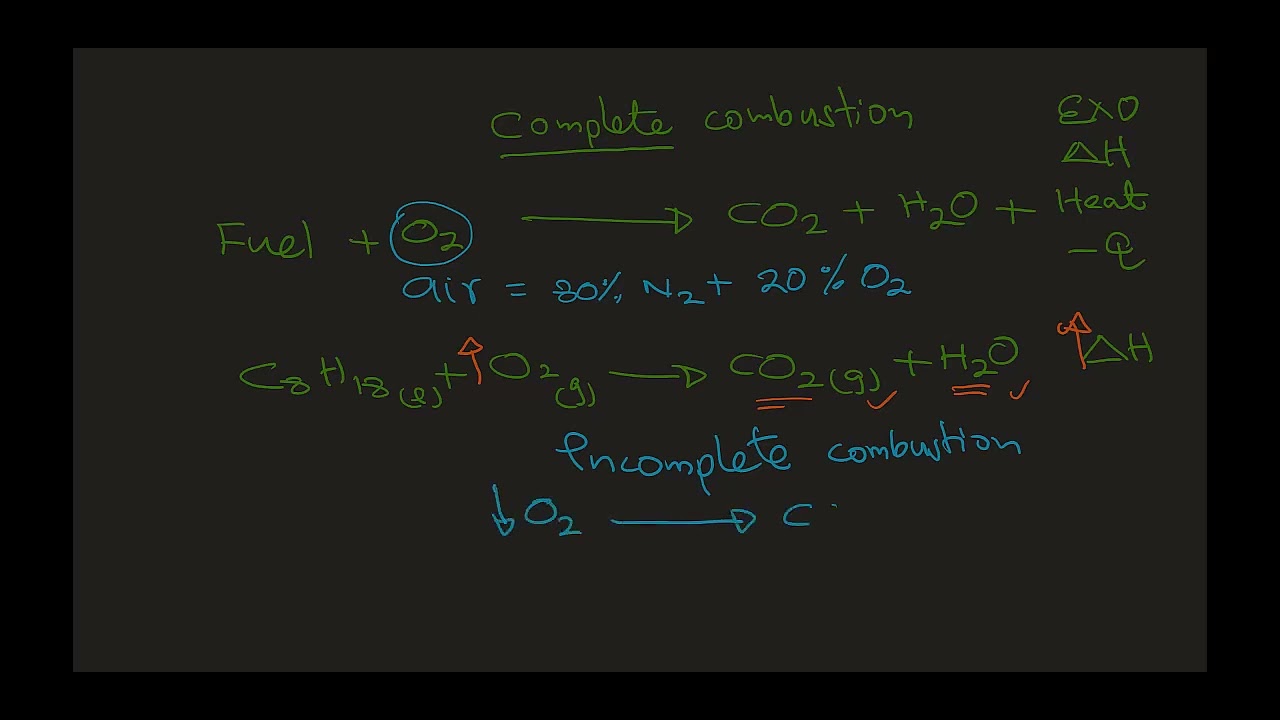 Complete combustion
EXO
ΔH
Fuel + O₂ → CO₂ + H₂O + Heat
- Q
air = 80% N₂ + 20% O₂
C₈H₁₈(l) + ↑O₂(g) → CO₂(g) + H₂O ↑ΔH
Incomplete combustion
↓O₂ → C